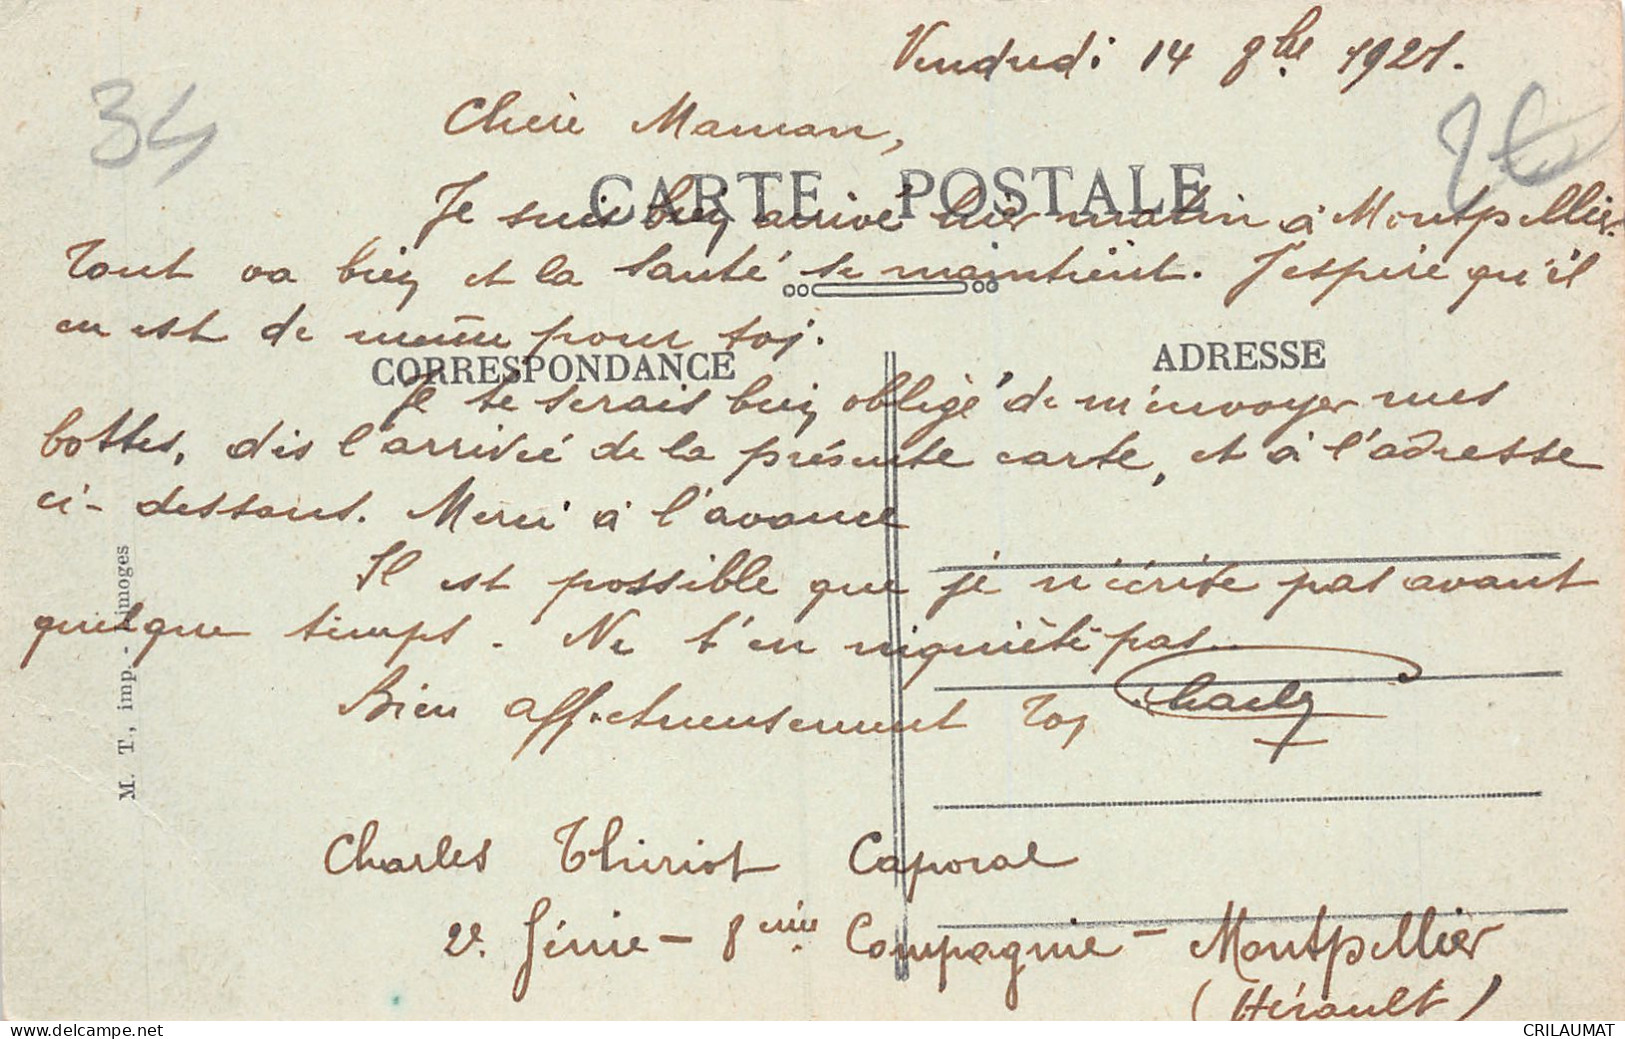 Vendredi 14 8bre 1921.
34
2€
Chère Maman,
CARTE POSTALE
Je suis bien arrivé hier matin à Montpellier.
Tout va bien et la santé se maintient. J'espère qu'il
en est de même pour toi.
CORRESPONDANCE
ADRESSE
Je te serais bien obligé de m'envoyer mes
bottes, dès l'arrivée de la présente carte, et à l'adresse
ci-dessous. Merci à l'avance
Il est possible que je n'écrise pas avant
quelque temps. Ne t'en niquiète pas..
Bien affectueusement Toj Charles
M. T., imp. - Limoges
Charles Thiriot Caporal
2e Génie - 8eme Compagnie - Montpellier
(Hérault)
delcampe.net
CRILAUMAT